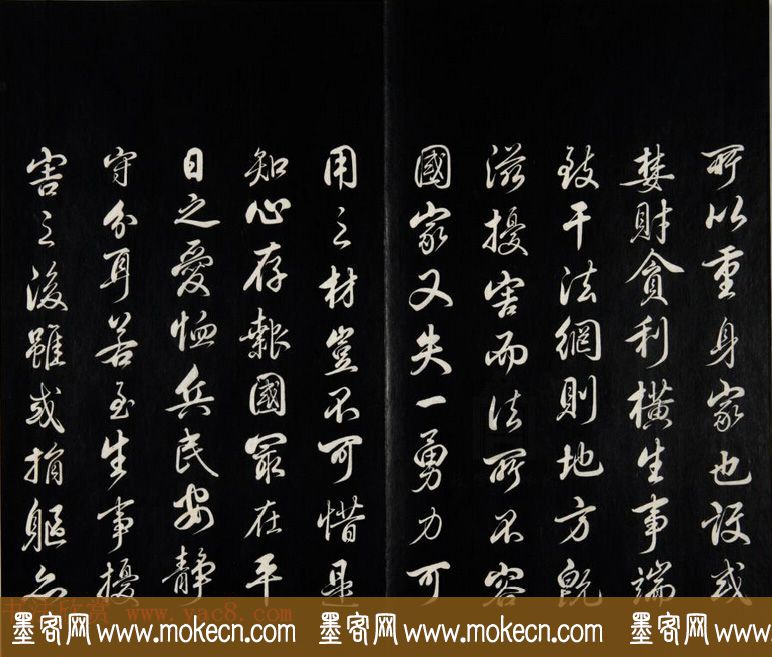 所以重身家也設或
婪財貪利橫生事端
致干法網則地方既
滋擾害而法所不容
國家又失一勇力可
用之材豈不可惜是
知心存報國最在平
日之愛恤兵民安靜
守分耳若至生事擾
害之後雖或捐軀亦
书法欣赏 www.yac8.com
墨客网 www.mokecn.com 墨客网 www.mokecn.com 墨客网